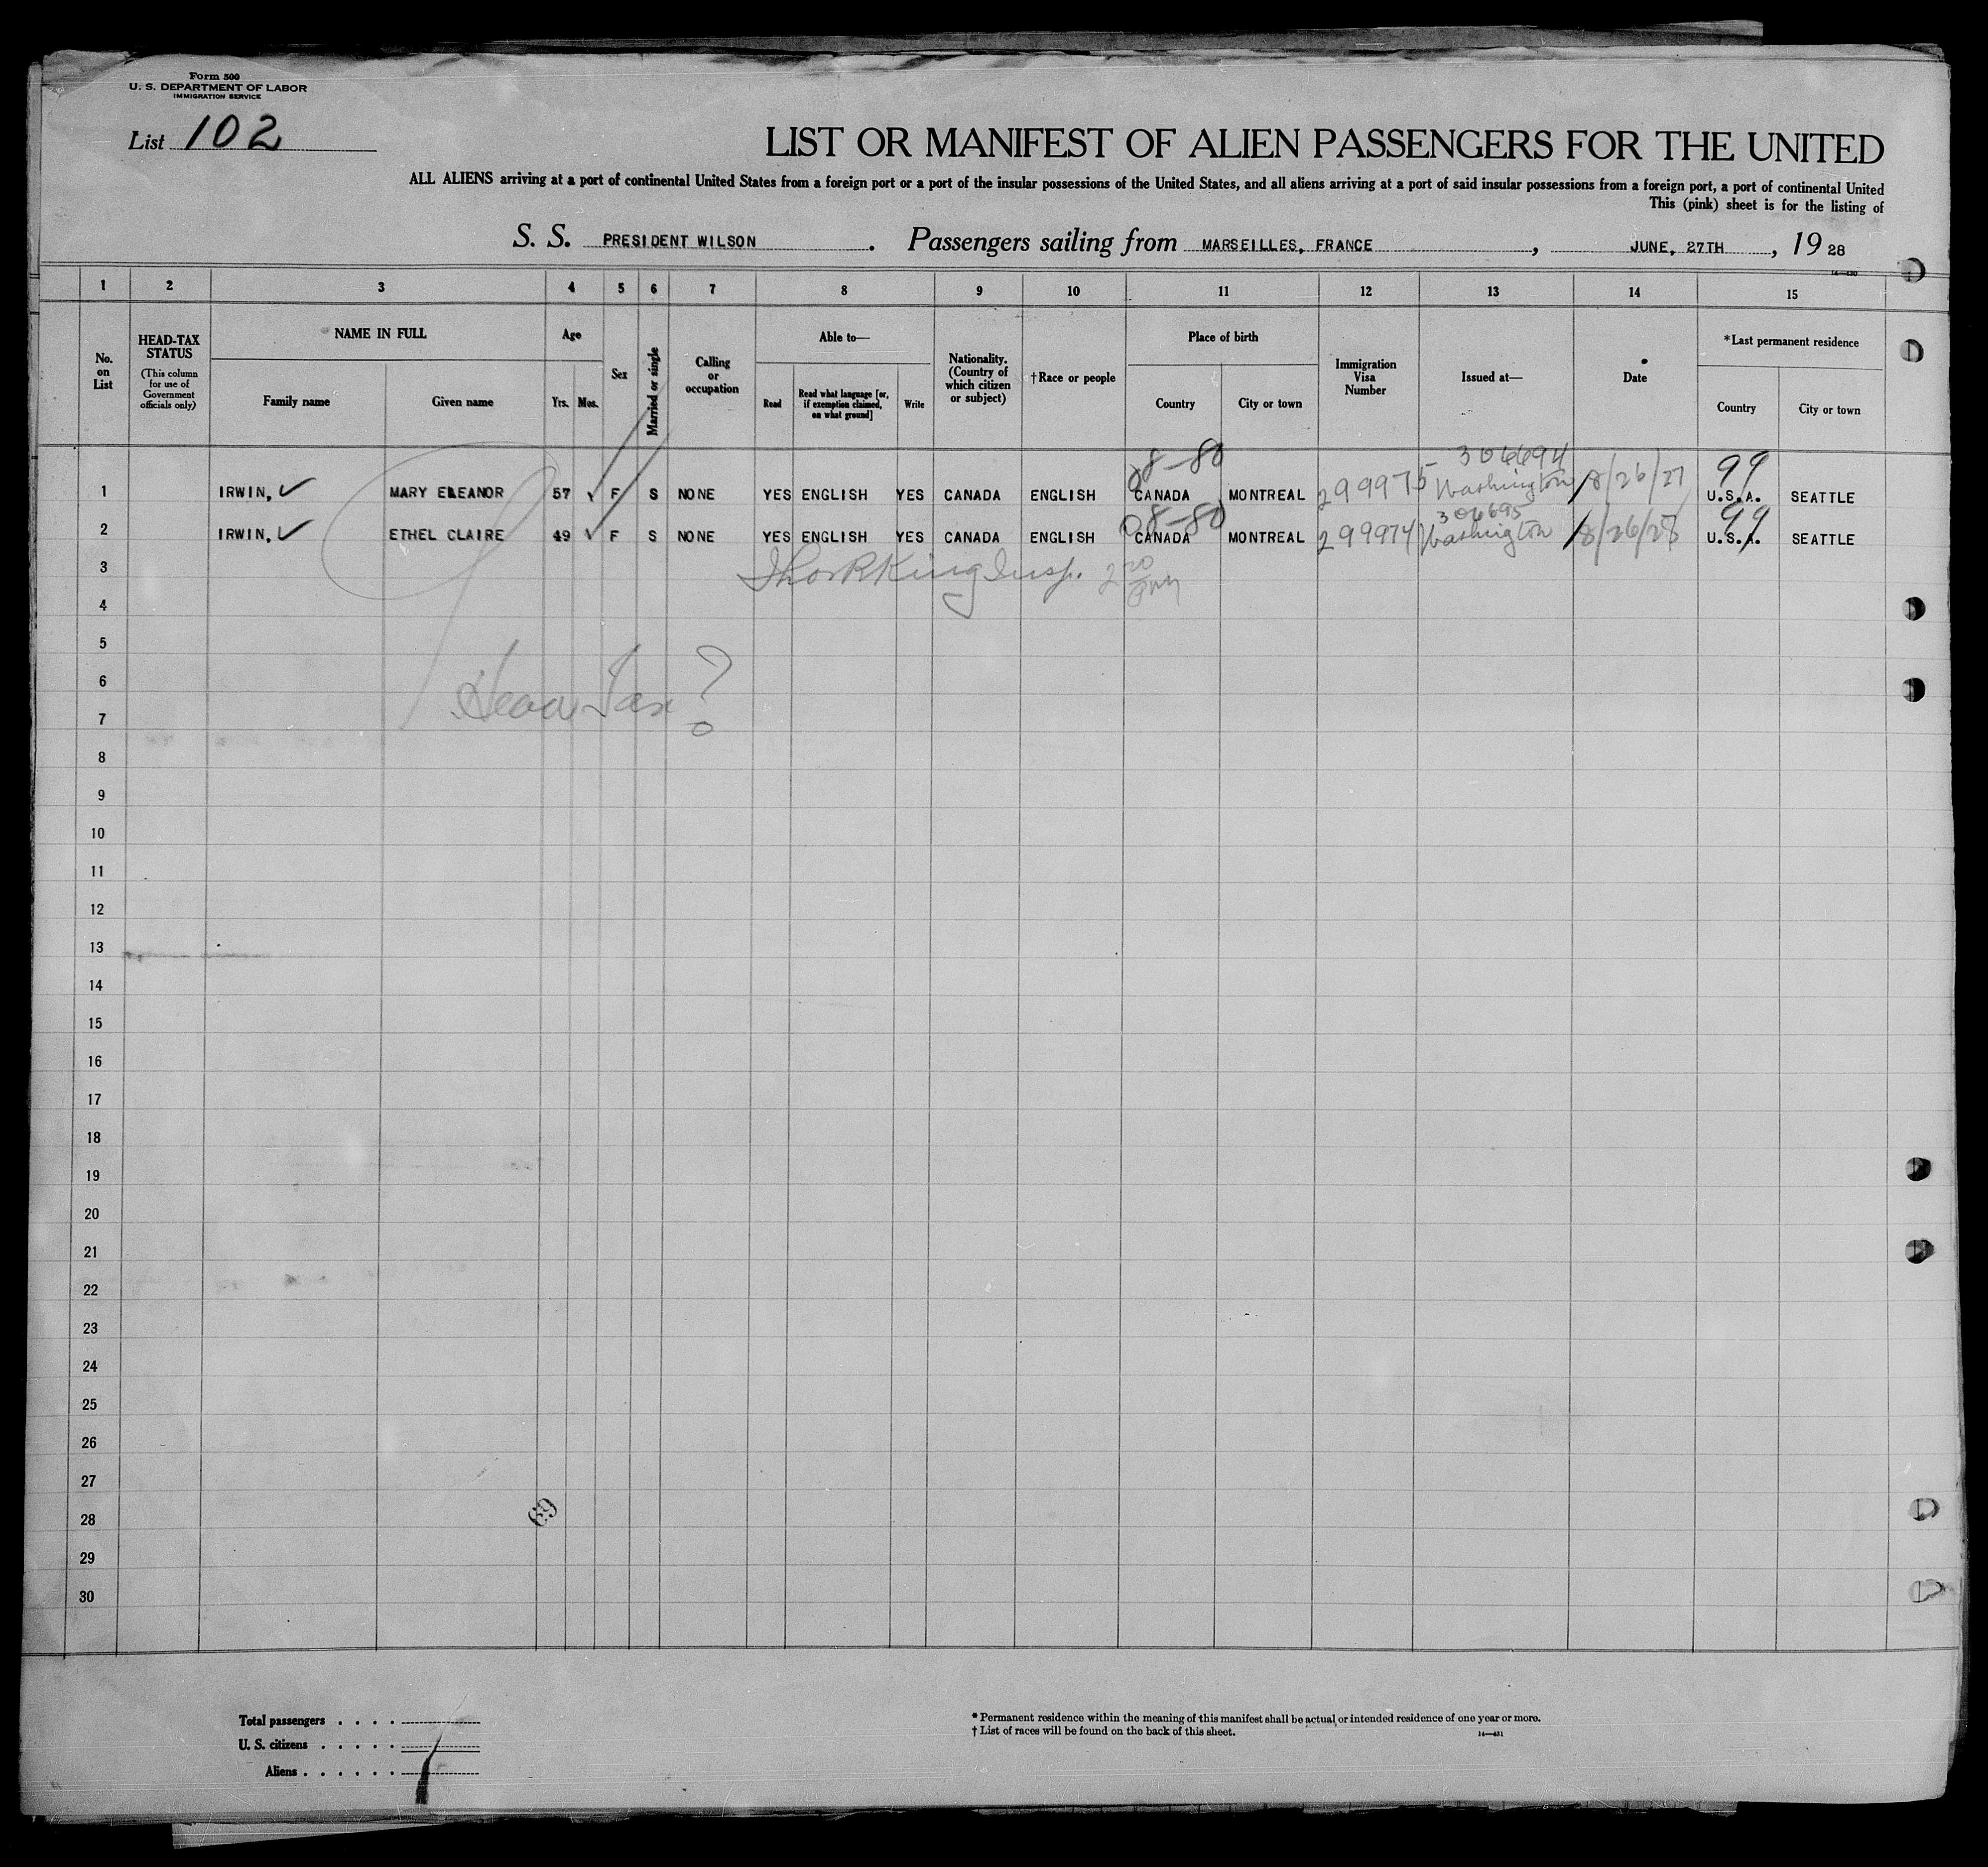 Form 500
U. S. DEPARTMENT OF LABOR
IMMIGRATION SERVICE
List 102
LIST OR MANIFEST OF ALIEN PASSENGERS FOR THE UNITED
ALL ALIENS arriving at a port of continental United States from a foreign port or a port of the insular possessions of the United States, and all aliens arriving at a port of said insular possessions from a foreign port, a port of continental United
This (pink) sheet is for the listing of
S. S. PRESIDENT WILSON. Passengers sailing from MARSEILLES, FRANCE, JUNE, 27TH, 19 28
1 2 3 4 5 6 7 8 9 10 11 12 13 14 15
No. on List
HEAD-TAX STATUS (This column for use of Government officials only)
NAME IN FULL
Family name Given name
Age
Yrs. Mos.
Sex
Married or single
Calling or occupation
Able to—
Read Read what language [or, if exemption claimed, on what ground] Write
Nationality. (Country of which citizen or subject)
†Race or people
Place of birth
Country City or town
Immigration Visa Number
Issued at—
Date
*Last permanent residence
Country City or town
08-80 306694 99
1 IRWIN, ✓ MARY ELEANOR 57 ✓ F S NONE YES ENGLISH YES CANADA ENGLISH CANADA MONTREAL 299975 Washington 8/26/27 U.S.A. SEATTLE
08-80 306695 99
2 IRWIN, ✓ ETHEL CLAIRE 49 ✓ F S NONE YES ENGLISH YES CANADA ENGLISH CANADA MONTREAL 299974 Washington 8/26/27 U.S.A. SEATTLE
3 King Insp.
4
5
6
Head Tax ?
7
8
9
10
11
12
13
14
15
16
17
18
19
20
21
22
23
24
25
26
27
28 69
29
30
Total passengers . . . .
U. S. citizens . . . . .
Aliens . . . . . .
* Permanent residence within the meaning of this manifest shall be actual or intended residence of one year or more.
† List of races will be found on the back of this sheet.
14—431